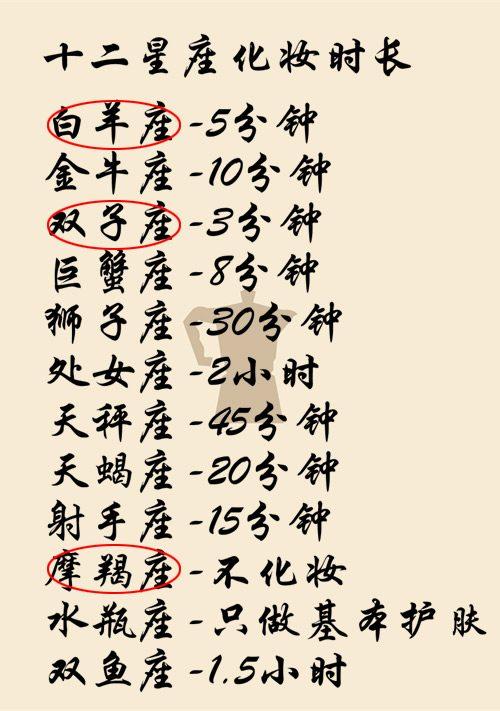 十二星座化妆时长
白羊座-5分钟
金牛座-10分钟
双子座-3分钟
巨蟹座-8分钟
狮子座-30分钟
处女座-2小时
天秤座-45分钟
天蝎座-20分钟
射手座-15分钟
摩羯座-不化妆
水瓶座-只做基本护肤
双鱼座-1.5小时